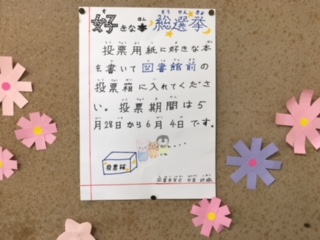 好きな本総選挙
投票用紙に好きな本
を書いて図書館前の
投票箱に入れてくださ
い。投票期間は5
月28日から6月4日です。
投票箱